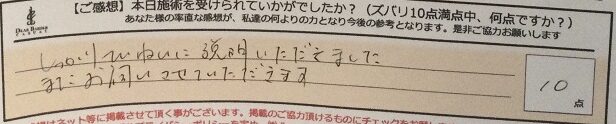 【ご感想】本日施術を受けられていかがでしたか？（ズバリ10点満点中、何点ですか？）
あなた様の率直な感想が、私達の何よりの力となり今後の参考となります。是非ご協力お願いします
しっかりていねいに説明いただきました
またお伺いさせていただきます
10
点
ネット等に掲載させて頂く事がございます。掲載のご協力頂けるものにチェックをお願